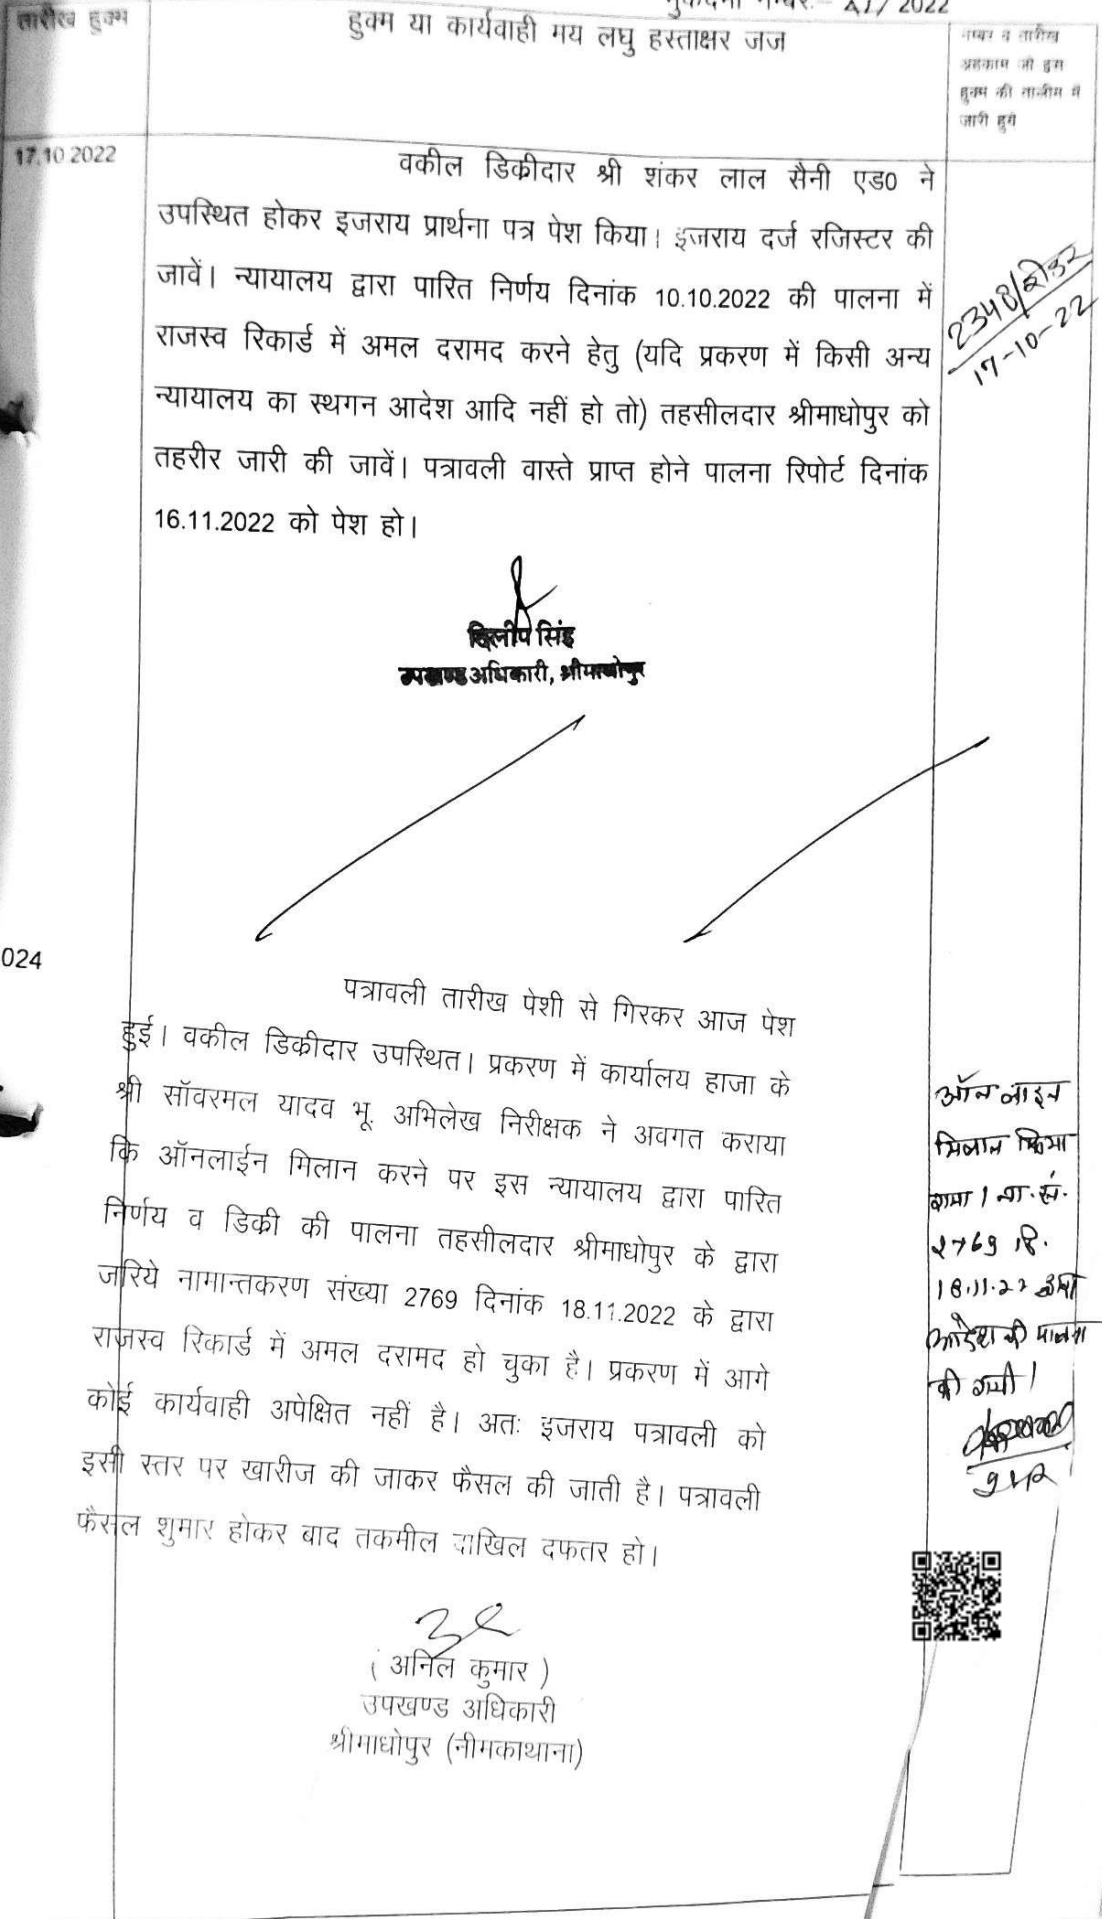 मुकदमा नम्बर:- /2022
तारीख हुक्म
हुक्म या कार्यवाही मय लघु हस्ताक्षर जज
नम्बर व तारीख
अहकाम जो इस
हुक्म की तामील में
जारी हुये
17.10.2022
वकील डिक्रीदार श्री शंकर लाल सैनी एड0 ने
उपस्थित होकर इजराय प्रार्थना पत्र पेश किया। इजराय दर्ज रजिस्टर की
जावें। न्यायालय द्वारा पारित निर्णय दिनांक 10.10.2022 की पालना में
राजस्व रिकार्ड में अमल दरामद करने हेतु (यदि प्रकरण में किसी अन्य
न्यायालय का स्थगन आदेश आदि नहीं हो तो) तहसीलदार श्रीमाधोपुर को
तहरीर जारी की जावें। पत्रावली वास्ते प्राप्त होने पालना रिपोर्ट दिनांक
16.11.2022 को पेश हो।
2348/रीडर
17-10-22
दिलीप सिंह
उपखण्ड अधिकारी, श्रीमाधोपुर
024
पत्रावली तारीख पेशी से गिरकर आज पेश
हुई। वकील डिक्रीदार उपस्थित। प्रकरण में कार्यालय हाजा के
श्री सॉवरमल यादव भू. अभिलेख निरीक्षक ने अवगत कराया
कि ऑनलाईन मिलान करने पर इस न्यायालय द्वारा पारित
निर्णय व डिक्री की पालना तहसीलदार श्रीमाधोपुर के द्वारा
जरिये नामान्तकरण संख्या 2769 दिनांक 18.11.2022 के द्वारा
राजस्व रिकार्ड में अमल दरामद हो चुका है। प्रकरण में आगे
कोई कार्यवाही अपेक्षित नहीं है। अतः इजराय पत्रावली को
इसी स्तर पर खारीज की जाकर फैसल की जाती है। पत्रावली
फैसल शुमार होकर बाद तकमील दाखिल दफतर हो।
ऑनलाइन
मिलान किया
गया। ना.सं.
2769 दि.
18.11.22 द्वारा
आदेश की पालना
की गयी।
( अनिल कुमार )
उपखण्ड अधिकारी
श्रीमाधोपुर (नीमकाथाना)